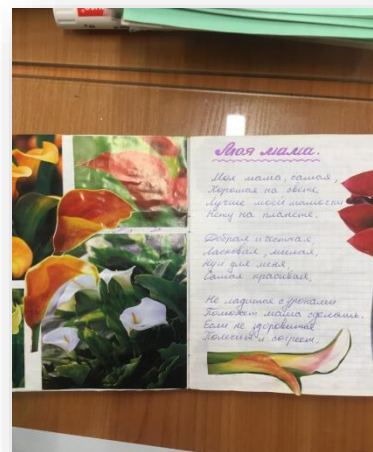 Моя мама.
Моя мама, самая,
Хорошая на свете,
Лучше моей мамочки
Нету на планете.
Добрая и
Ласковая, милая,
для меня,
Самая красивая.
Не ладится с уроками
Поможет мама сделать.
Если не здоровится
и согреет.